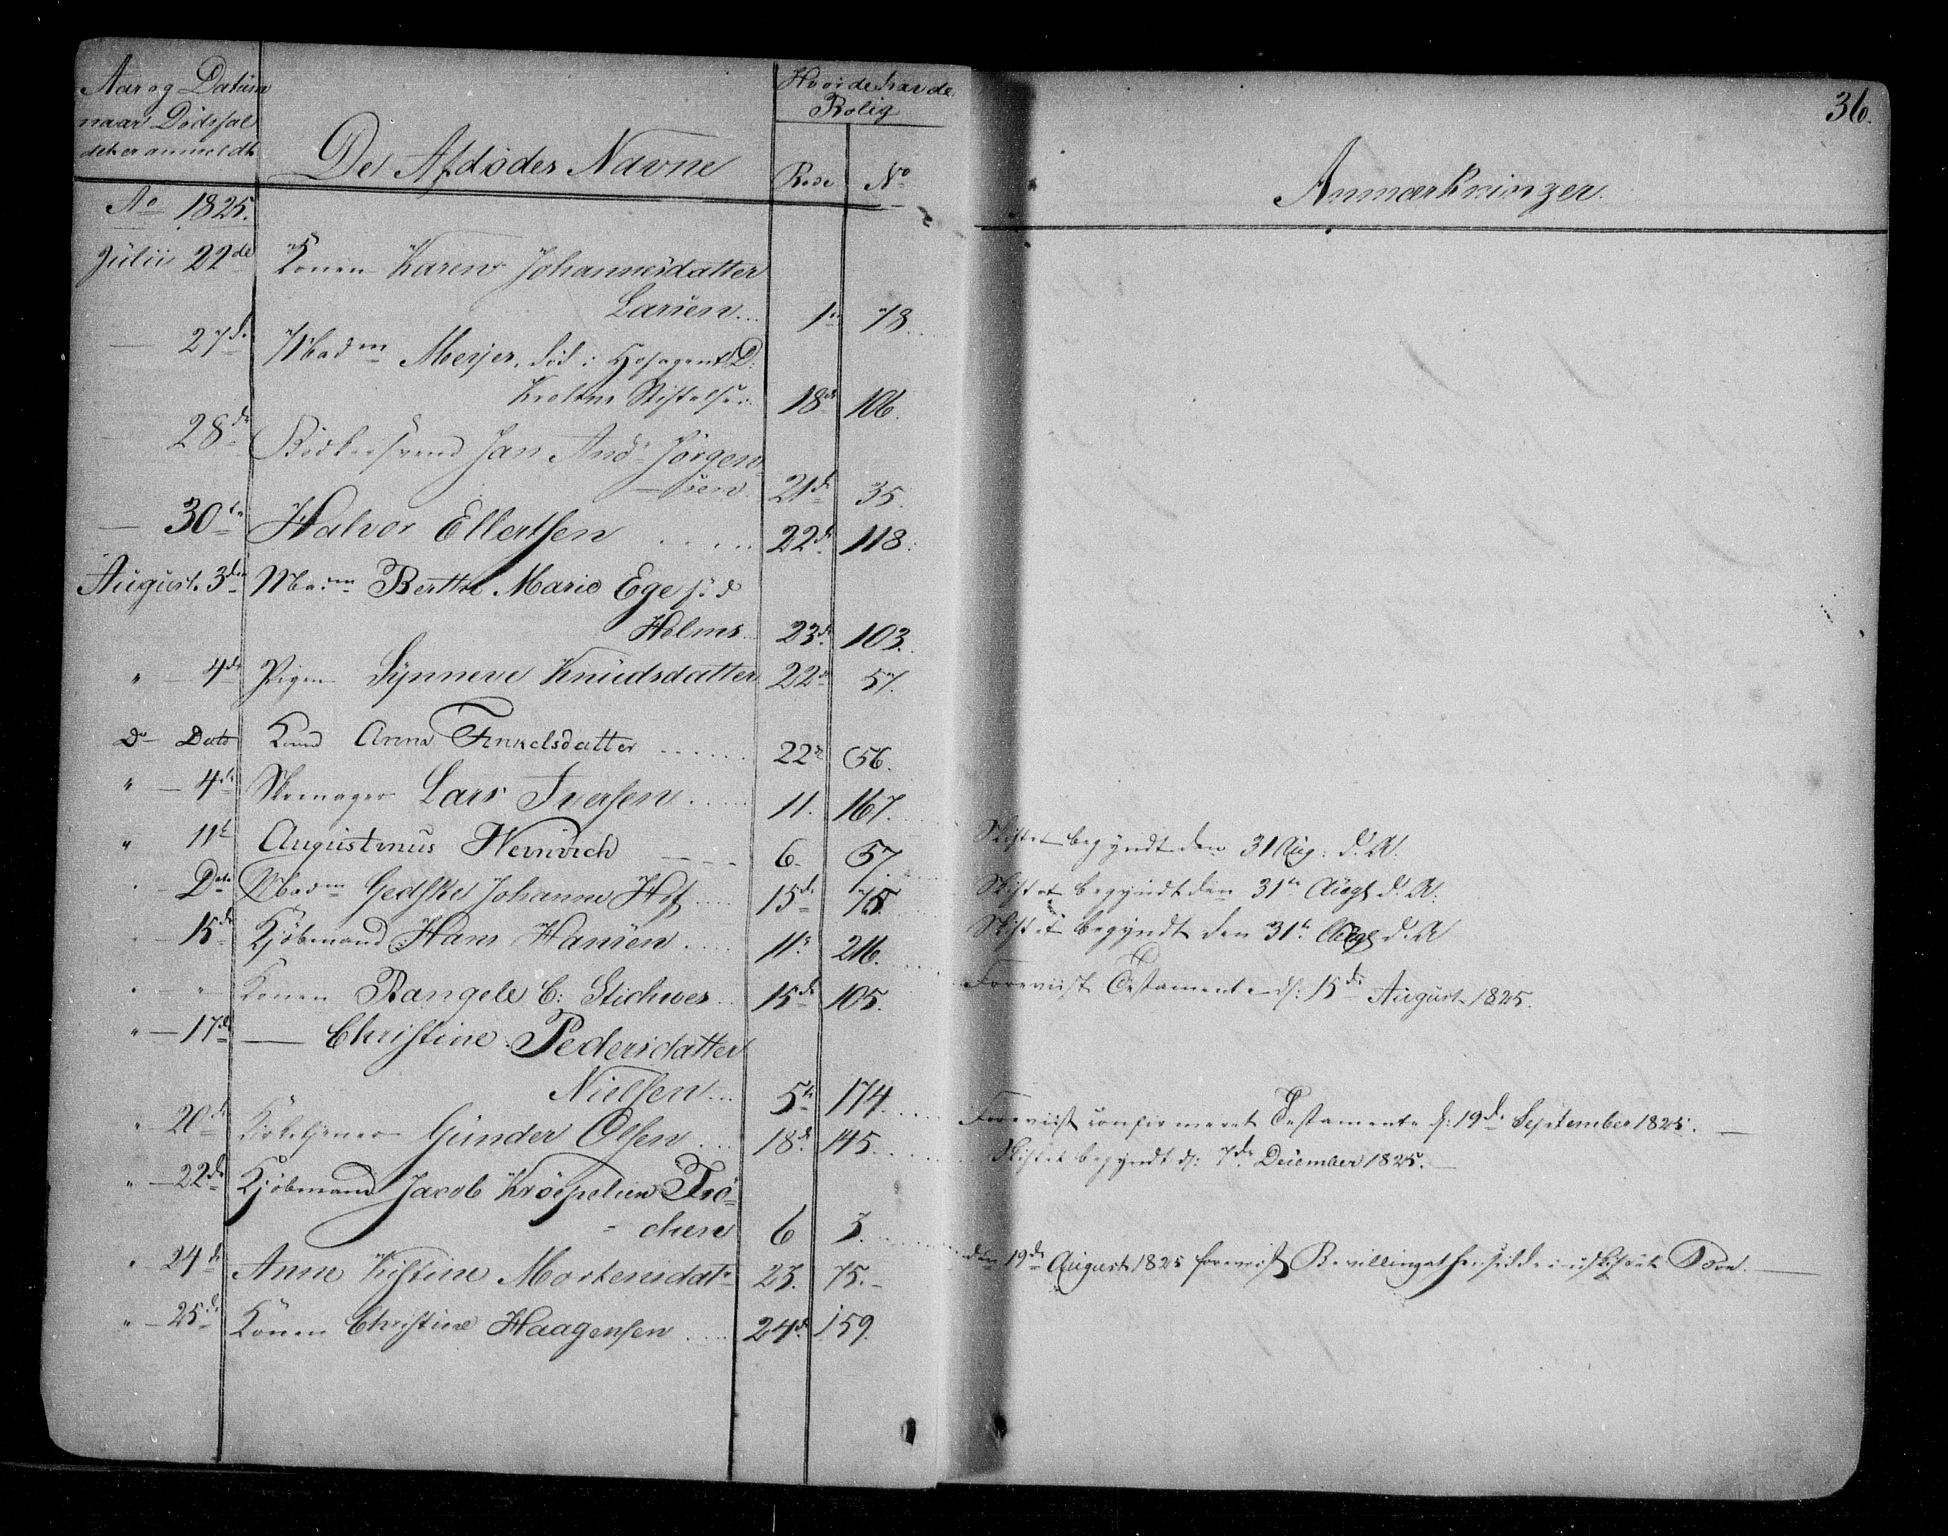 Aar og Datum
naar Dødsfal
det er anmeldt
De Afdødes Navne
Hvor de havde
Bolig
Rode
No
Ao 1825.
Julii 22de Konen Karen Johannesdatter
Larsen... 1e 78.
— 27de Madm Meyer, død i Hofagent D:
Krohns Stiftelse.. 18de 106.
— 28de Bødkersvend Jan Ands Jörgen
-sen 21de 35.
— 30te Halvor Ellertsen ..... 22de 118.
August 3die Madm Berthe Marie Ege fød
Holms 23de 103.
" — 4de Pigen Synneve Knudsdatter 22de 57.
Do — Dato Anna Finkelsdatter ..... 22de 56.
" — 4de Skomager Lars Iversen ..... 11. 167.
" 11te Augustinus Heinrich ---- 6. 57.
" — Dato Madm Gedske Johanne Hof .... 15de 75
" — 15de Kjøbmand Hans Hansen .... 11te 216.
" — " Konen Rangele C: Stichwes.. 15de 105.
" — 17de — Christine Pedersdatter
Nielsen... 5te 174.
" — 20de Kirketjener Gunder Olsen ... 18de 145.
" — 22de Kjøbmand Jacob Kröepelien Trö
-chen 6 3.
" — 24de Anne Kistine Mortensdatr 23. 75.-
" — 25de Konen Christine Haagensen .... 24de 159.
36.
Anmærkninger.
Skiftet begyndt den 31 Aug: d. A.
Skiftet begyndt den 31te Augt d. A.
Skiftet begyndt den 31te Augt d. A
Foreviist Testamente d: 15de August 1825.
Foreviist confirmeret Testamente d: 19de September 1825. —
Skiftet begyndt d: 7de December 1825. —
den 19de August 1825 foreviist Bevilling at hensidde i uskiftet Boe. —